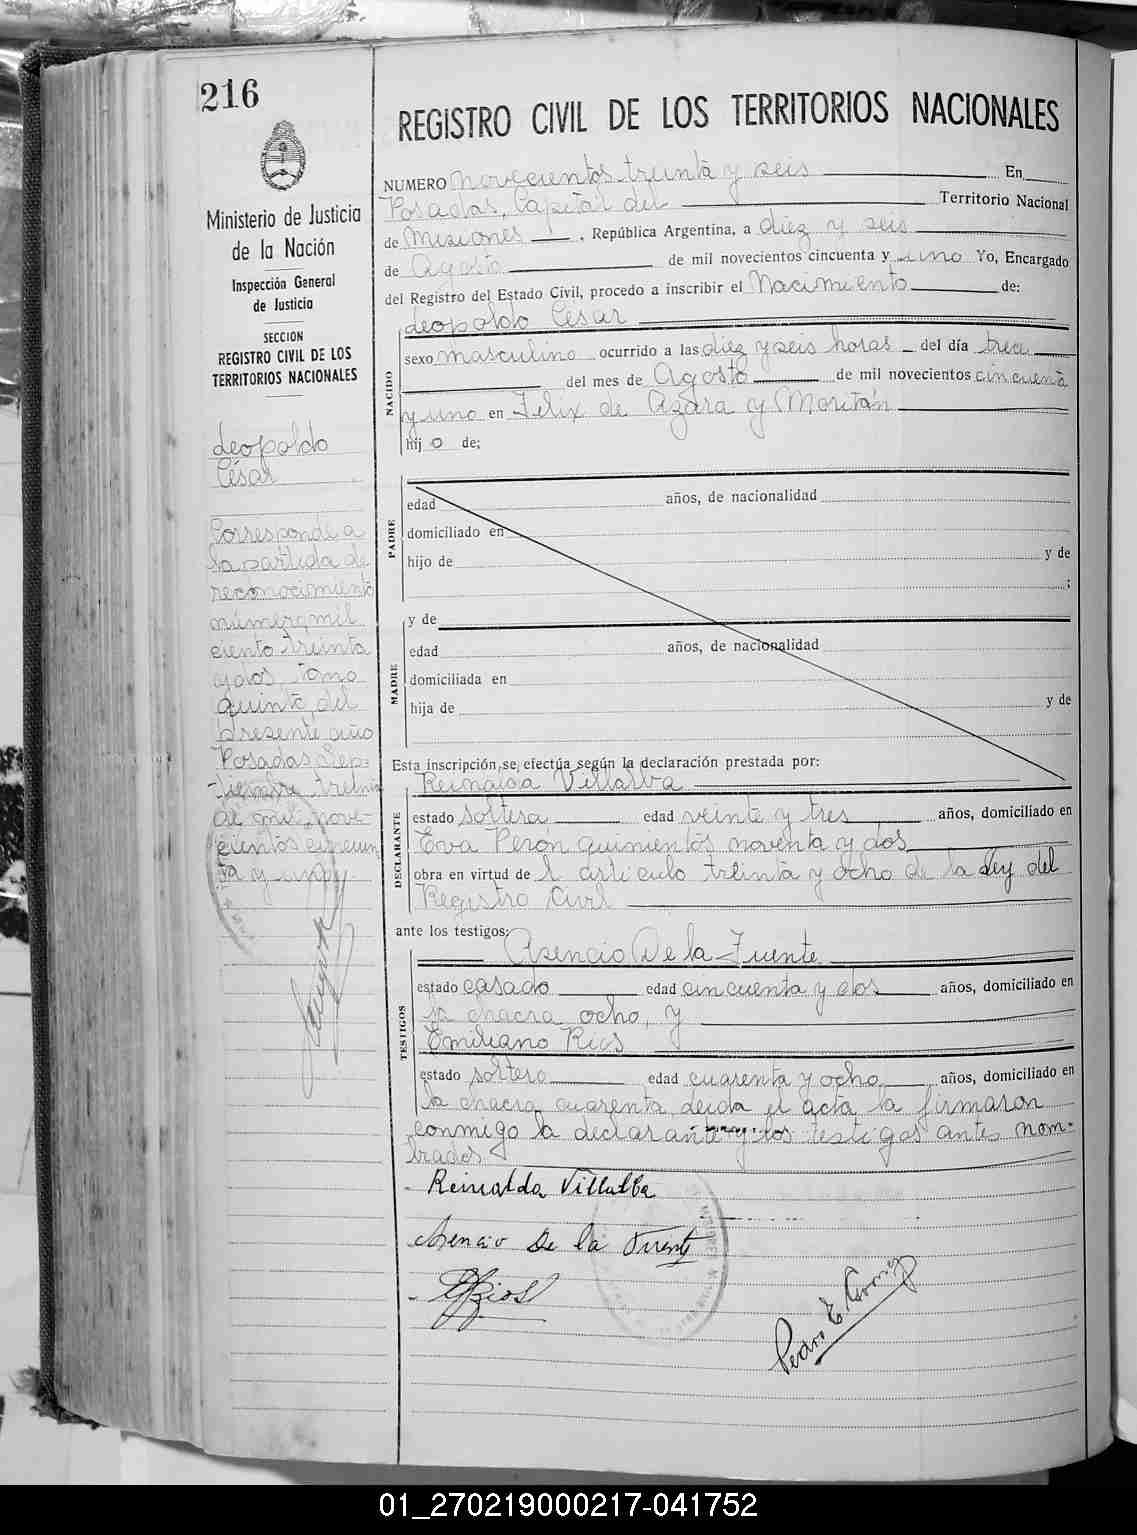 216
REGISTRO CIVIL DE LOS TERRITORIOS NACIONALES
Ministerio de Justicia
de la Nación
Inspección General
de Justicia
SECCION
REGISTRO CIVIL DE LOS
TERRITORIOS NACIONALES
Leopoldo
César
Corresponde a
la partida de
reconocimiento
número mil
ciento treinta
y dos, tomo
quinto, del
presente año
Posadas Sep-
tiembre treinta
de mil nove-
cientos cincuen
ta y uno
NUMERO novecientos treinta y seis En
Posadas, Capital del Territorio Nacional
de Misiones, República Argentina, a diez y seis
de Agosto de mil novecientos cincuenta y uno Yo, Encargado
del Registro del Estado Civil, procedo a inscribir el Nacimiento de:
Leopoldo César
NACIDO
sexo masculino ocurrido a las diez y seis horas del día trece
del mes de Agosto de mil novecientos cincuenta
y uno en Felix de Azara y Moritán
hijo de;
PADRE
edad años, de nacionalidad
domiciliado en
hijo de y de
;
MADRE
y de
edad años, de nacionalidad
domiciliada en
hija de y de
Esta inscripción se efectúa según la declaración prestada por:
Reinalda Villalba
DECLARANTE
estado soltera edad veinte y tres años, domiciliado en
Eva Perón quinientos noventa y dos
obra en virtud del artículo treinta y ocho de la Ley del
Registro Civil
ante los testigos:
Asencio De la Fuente
TESTIGOS
estado casado edad cincuenta y dos años, domiciliado en
la chacra ocho, y
Emiliano Rios
estado soltero edad cuarenta y ocho años, domiciliado en
la chacra cuarenta, leida el acta la firmaron
conmigo la declarante y los testigos antes nom-
brados.
Reinalda Villalba
Asencio De la Fuente
ERios
Pedro E.
01_270219000217-041752